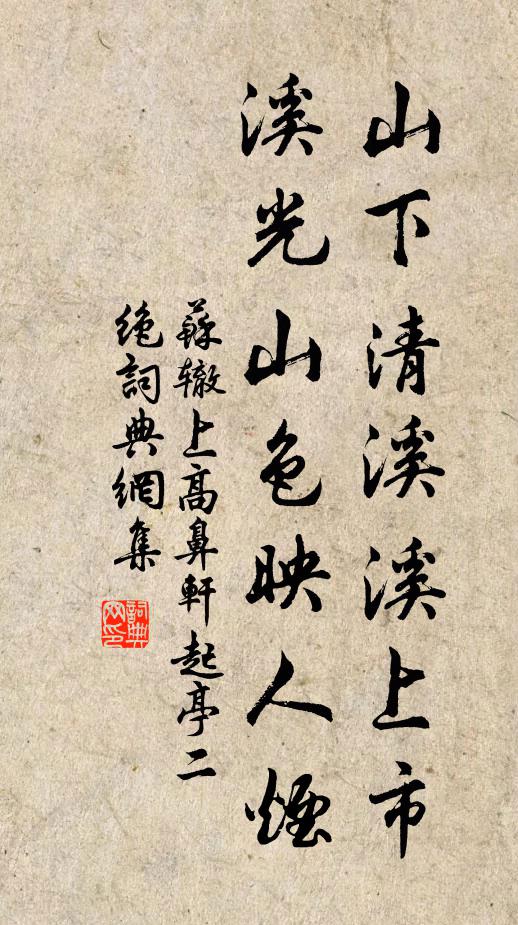 山下清溪溪上市
溪光山色映人煙
蘇辙上高鼻軒起亭二
絶詞典網集
詞典网印